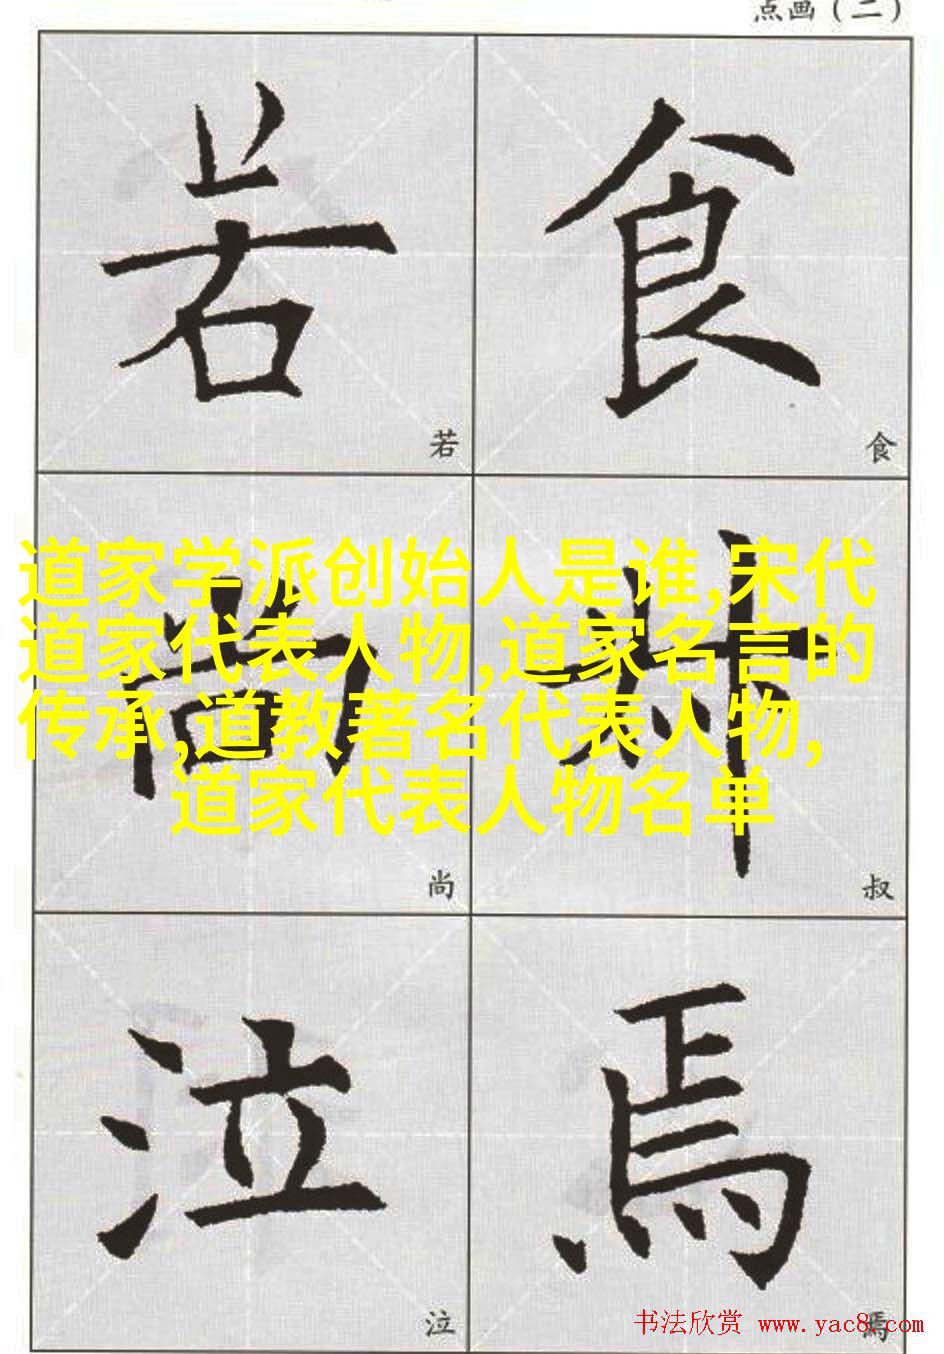 点画（二）
若 食
若 食
道家学派创始人是谁,宋代
道家代表人物,道家名言的
传承,道教著名代表人物,
道家代表人物名单
尚 叔
尚 叔
泣 焉
泣 焉
书法欣赏 www.yac8.com